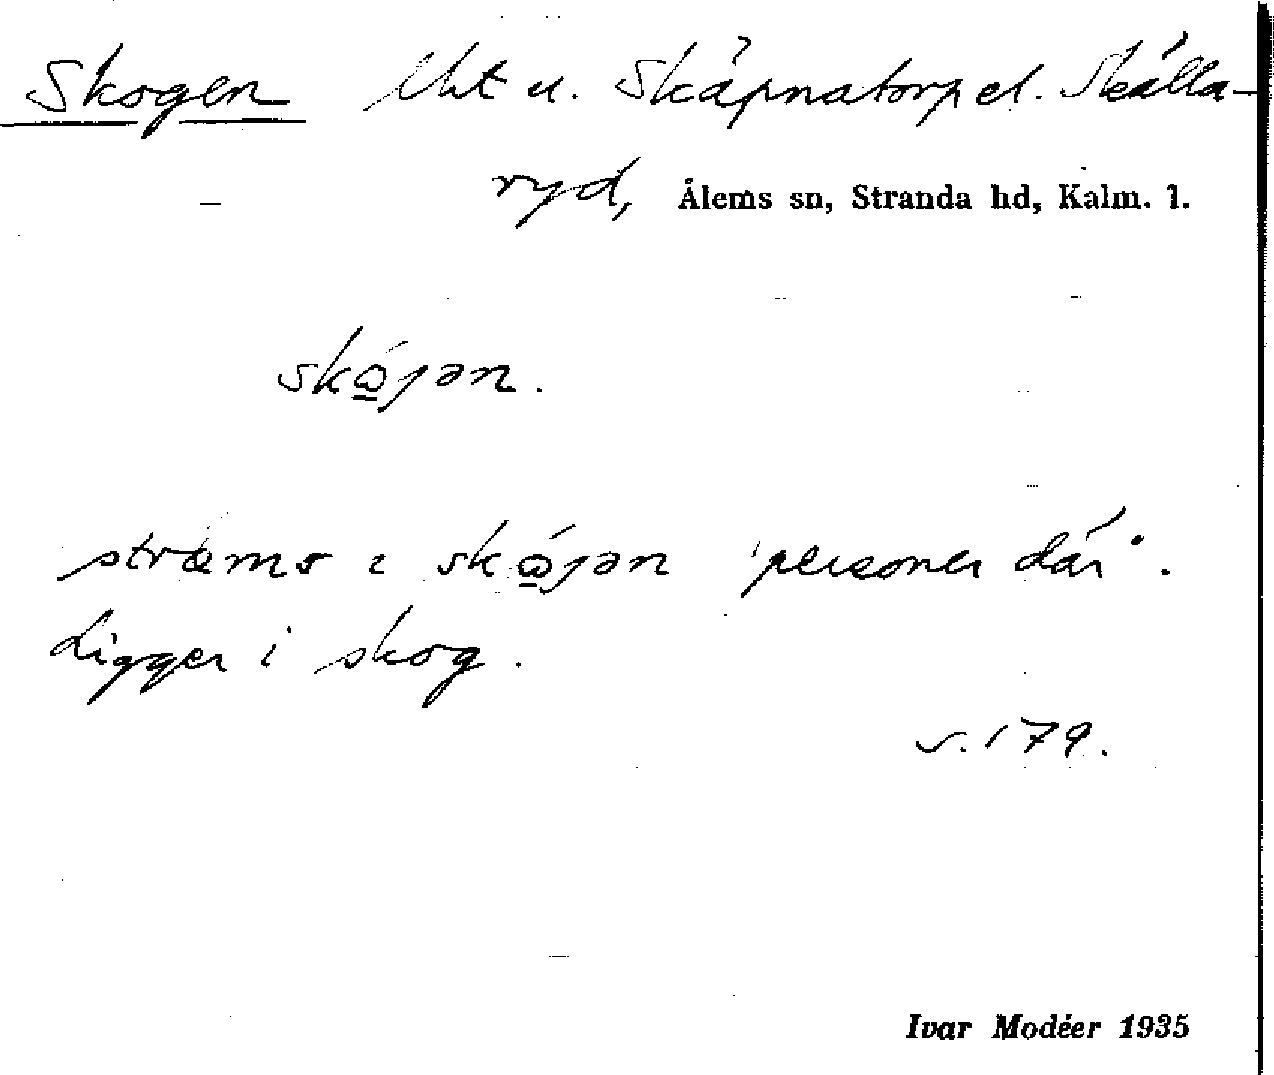 Skogen Uht u. Skäpnatorp el. Skälla-
ryd, Ålems sn, Stranda hd, Kalm. l.
skǫ́jən.
i skǫ́jən 'personer där'.
Ligger i skog.
s. 179.
Ivar Modéer 1935